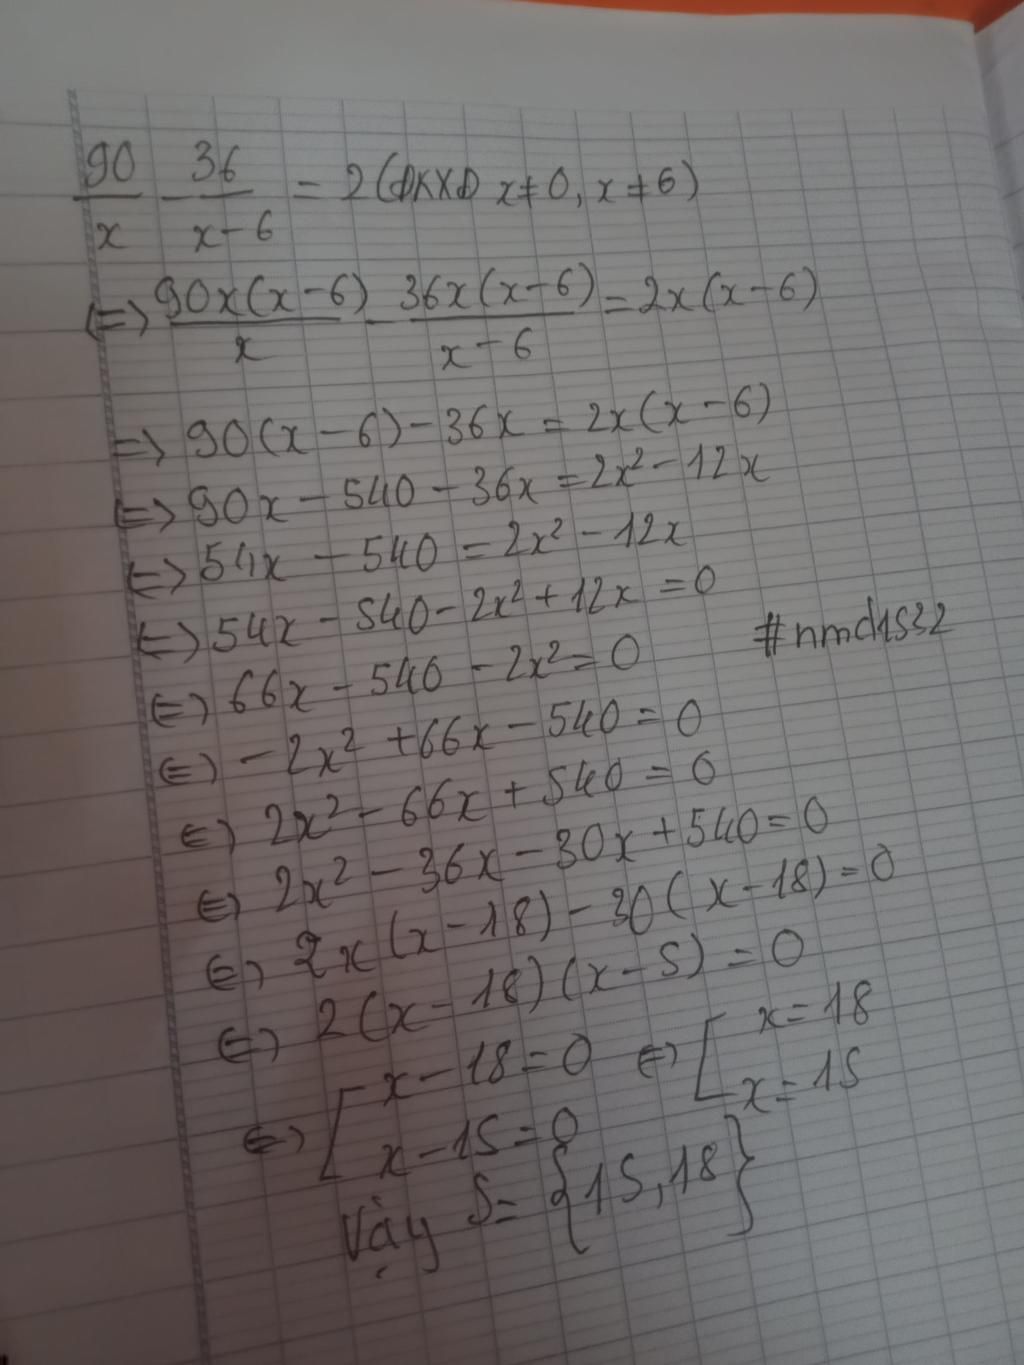 90/x - 36/(x-6) = 2 (ĐKXĐ x≠0, x≠6)
⇔ 90x(x-6)/x - 36x(x-6)/(x-6) = 2x(x-6)
⇒ 90(x-6) - 36x = 2x(x-6)
⇔ 90x - 540 - 36x = 2x² - 12x
⇔ 54x - 540 = 2x² - 12x
⇔ 54x - 540 - 2x² + 12x = 0
#nmd1522
⇔ 66x - 540 - 2x² = 0
⇔ -2x² + 66x - 540 = 0
⇔ 2x² - 66x + 540 = 0
⇔ 2x² - 36x - 30x + 540 = 0
⇔ 2x(x-18) - 30(x-18) = 0
⇔ 2(x-18)(x-5) = 0
⇔ [ x-18=0 ⇔ [ x=18
x-15=0 x=15
Vậy S={15,18}